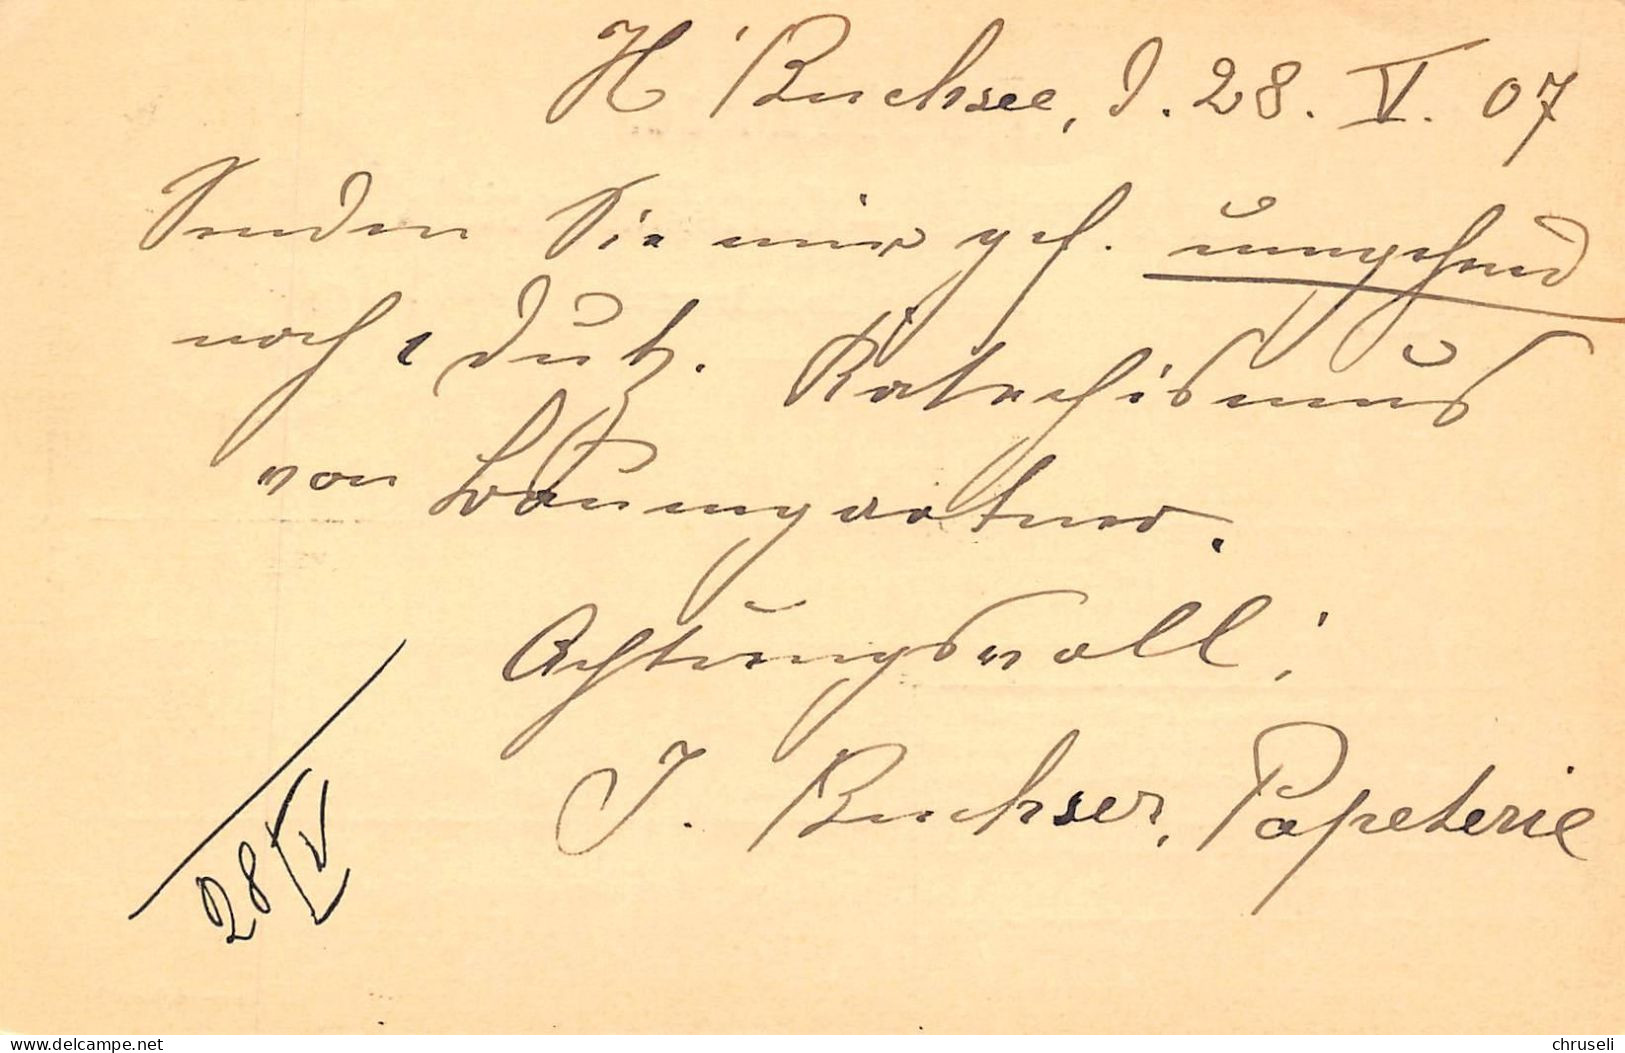 H'Buchsee, d. 28. V. 07
Senden Sie mir gef. umgehend
noch 1 Dutz. Katechismus
von Baumgartner.
Achtungsvoll!
J. Buchser, Papeterie
28/V
delcampe.net
chruseli